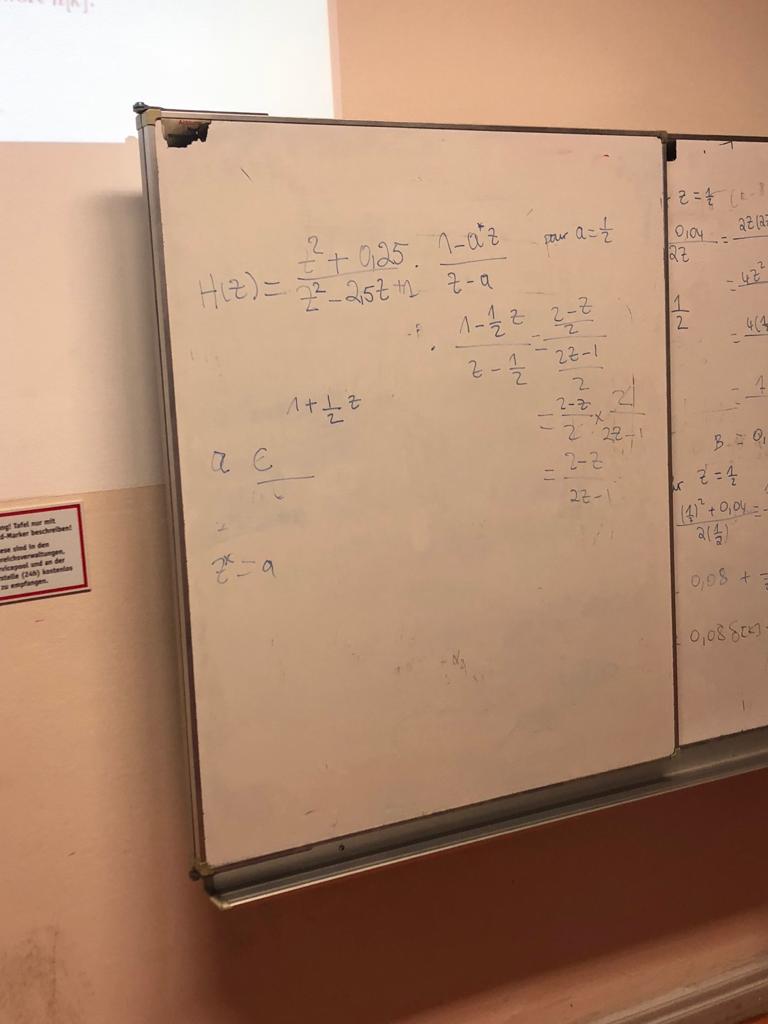 H(z) = (z² + 0,25)/(z² - 2,5z + 1) · (1 - a*z)/(z - a) pour a = 1/2
· (1 - 1/2 z)/(z - 1/2) = ((2-z)/2)/((2z-1)/2)
1 + 1/2 z
= (2-z)/2 × 2/(2z-1)
a ∈
= (2-z)/(2z-1)
z* = a
z = 1/2
0,04/2z = 2z(2z
= 4z²
1/2
= 4(1/
= 1
B = 0,
z = 1/2
((1/2)² + 0,04)/(2(1/2)) =
0,08 +
0,08δ[k]
ng! Tafel nur mit
d-Marker beschreiben!
ese sind in den
reichsverwaltungen,
rvicepool und an der
stelle (24h) kostenlos
zu empfangen.